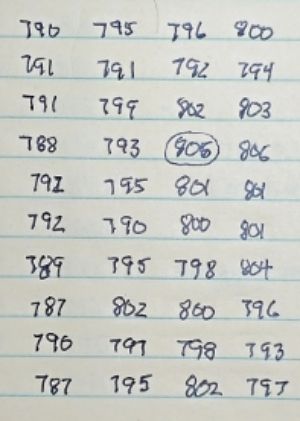 790 795 796 800
791 791 792 794
791 799 802 803
788 793 805 806
792 795 801 801
792 790 800 801
789 795 798 804
787 802 800 796
790 797 798 793
787 795 802 797